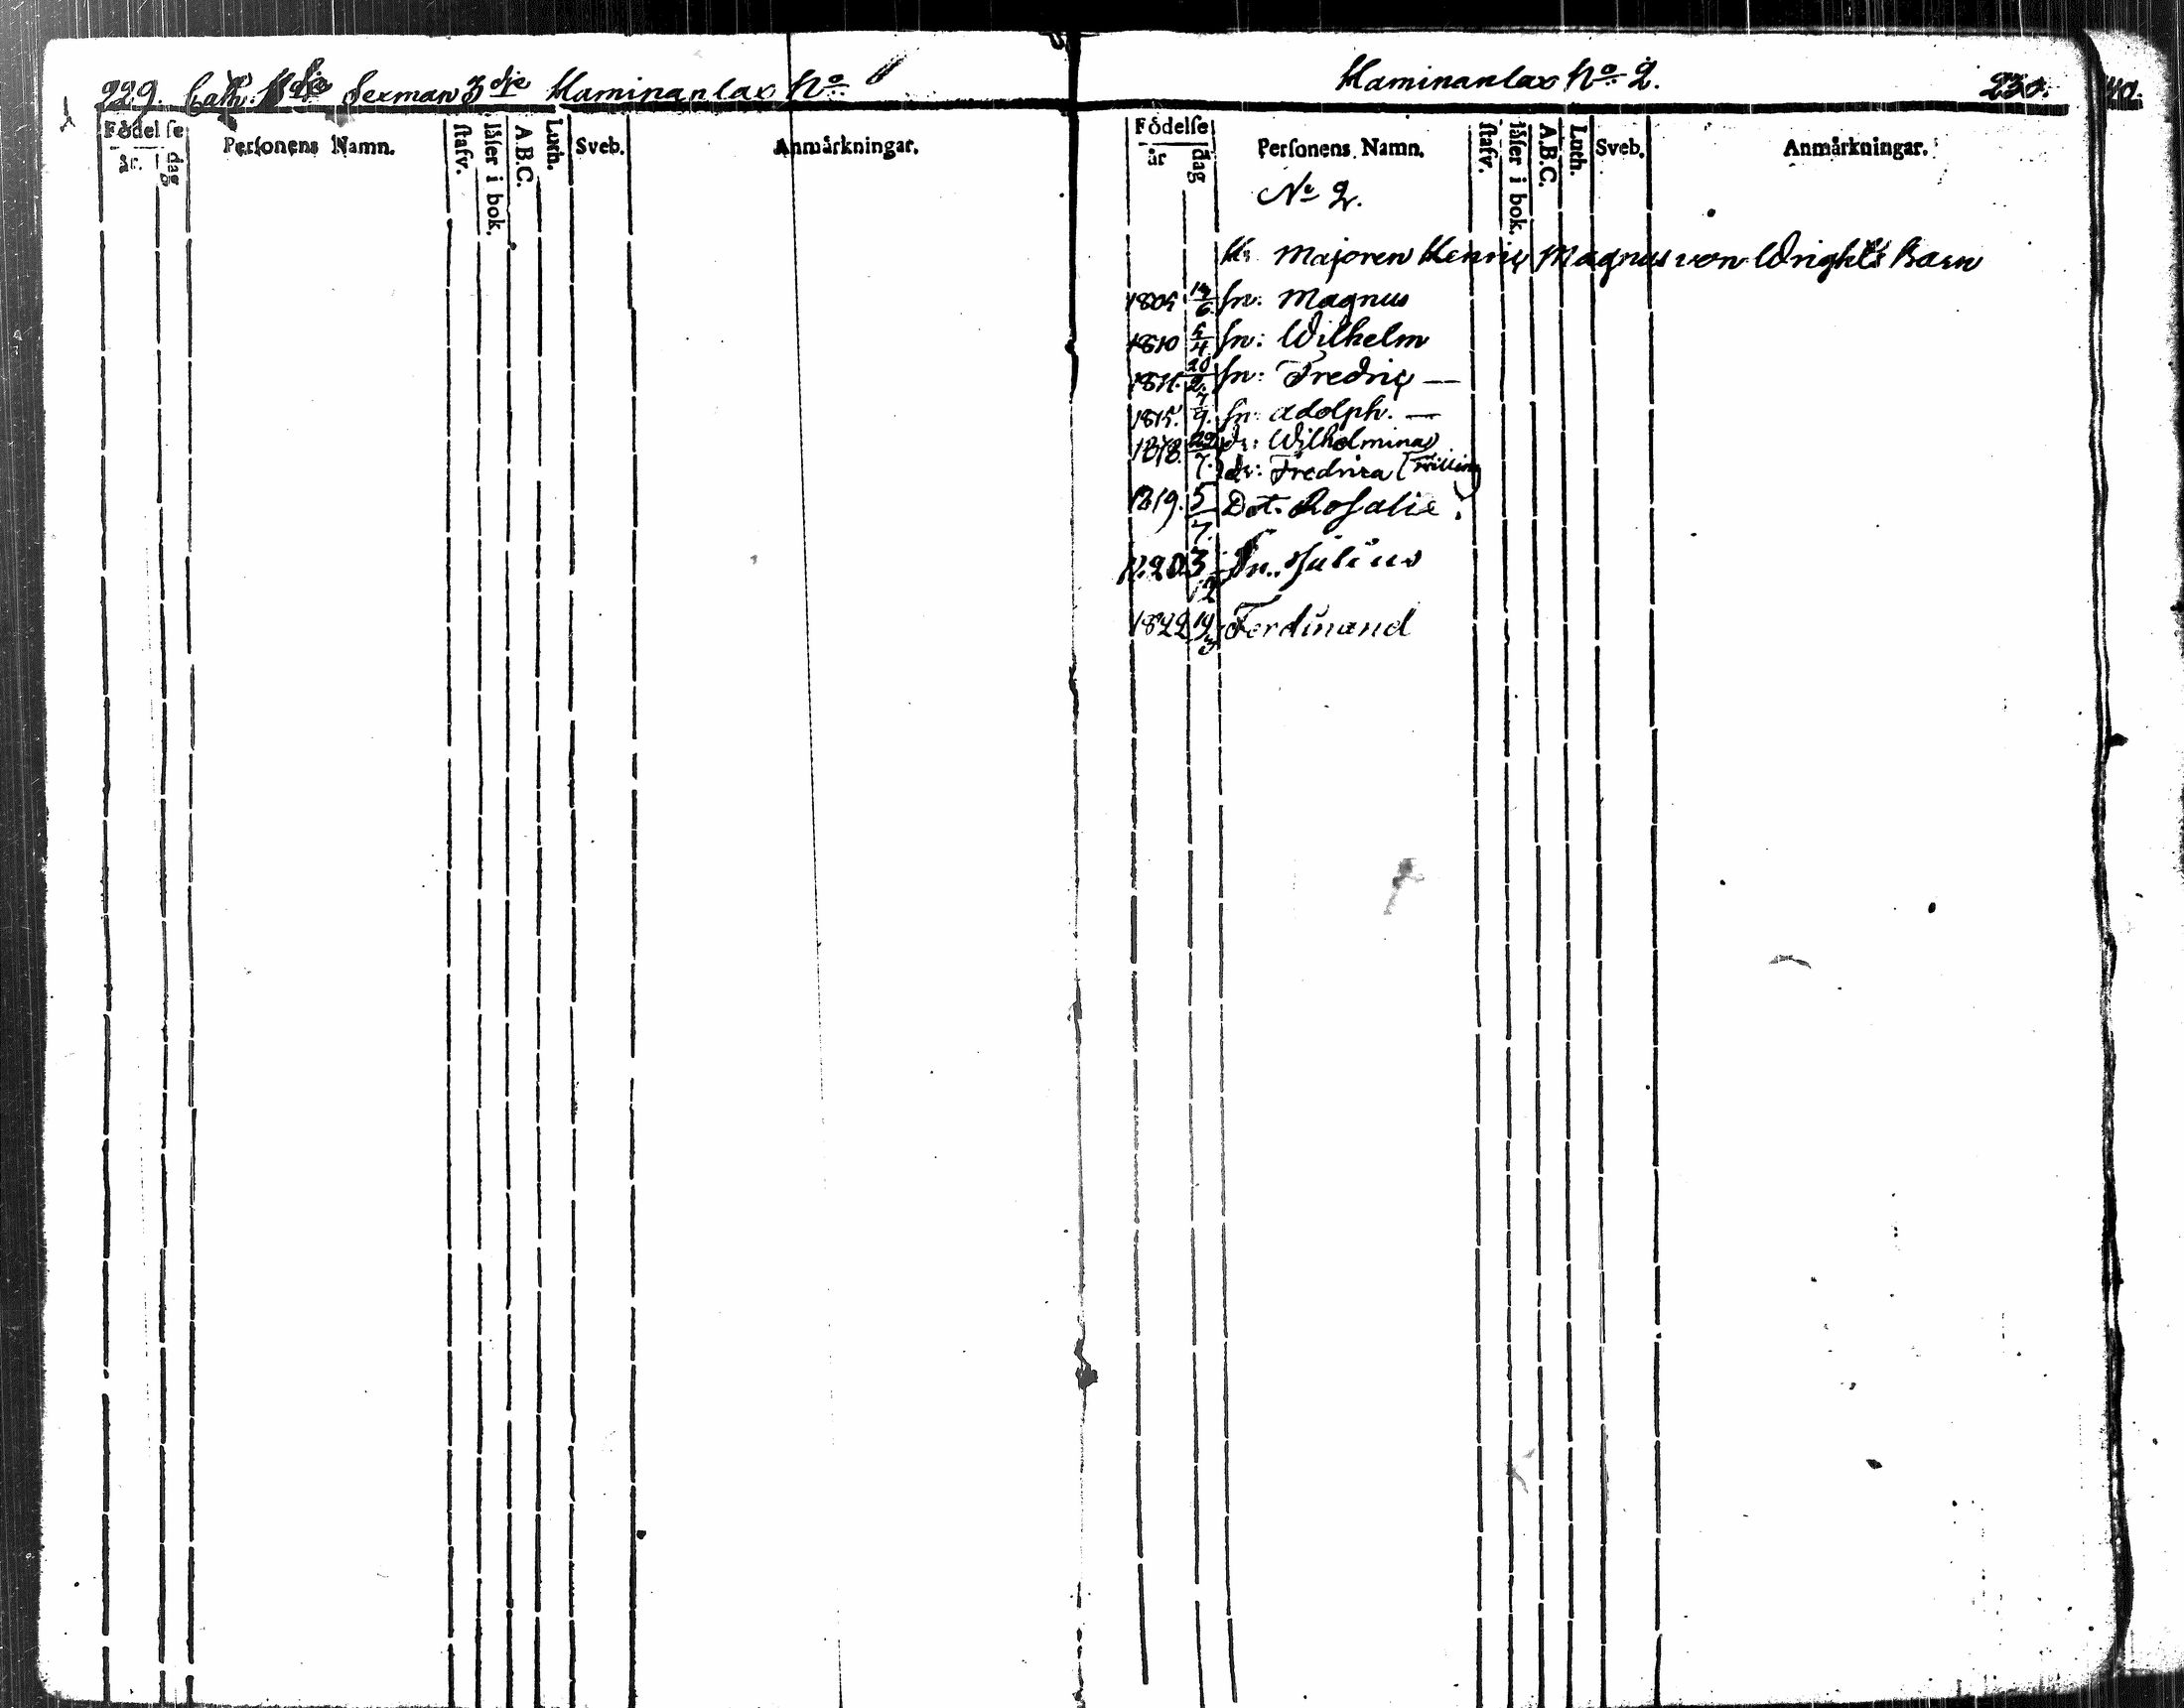 229. Cath: 11te Serman 3dje Haminanlax No 1
Födelse
år. dag
Personens Namn.
stafv.
läser i bok.
A.B.C.
Luth.
Sveb.
Anmärkningar.
Haminanlax No 2. 230.
Födelse
år dag
Personens Namn.
stafv.
läser i bok.
A.B.C.
Luth.
Sveb.
Anmärkningar.
No 2.
Hr Majoren Henric Magnus von Wright's Barn
1805 13/6 sn: Magnus
1810 5/4 sn: Wilhelm
20/2. sn: Fredric —
1815. 7/9. sn: Adolph. —
1818. 22/7. dr: Wilhelmina
dr: Fredrica Tvilling
1819. 5/7. Dot. Rosalie
1820 3/12 Sn. Julius
1822 19/3 Ferdinand
40.